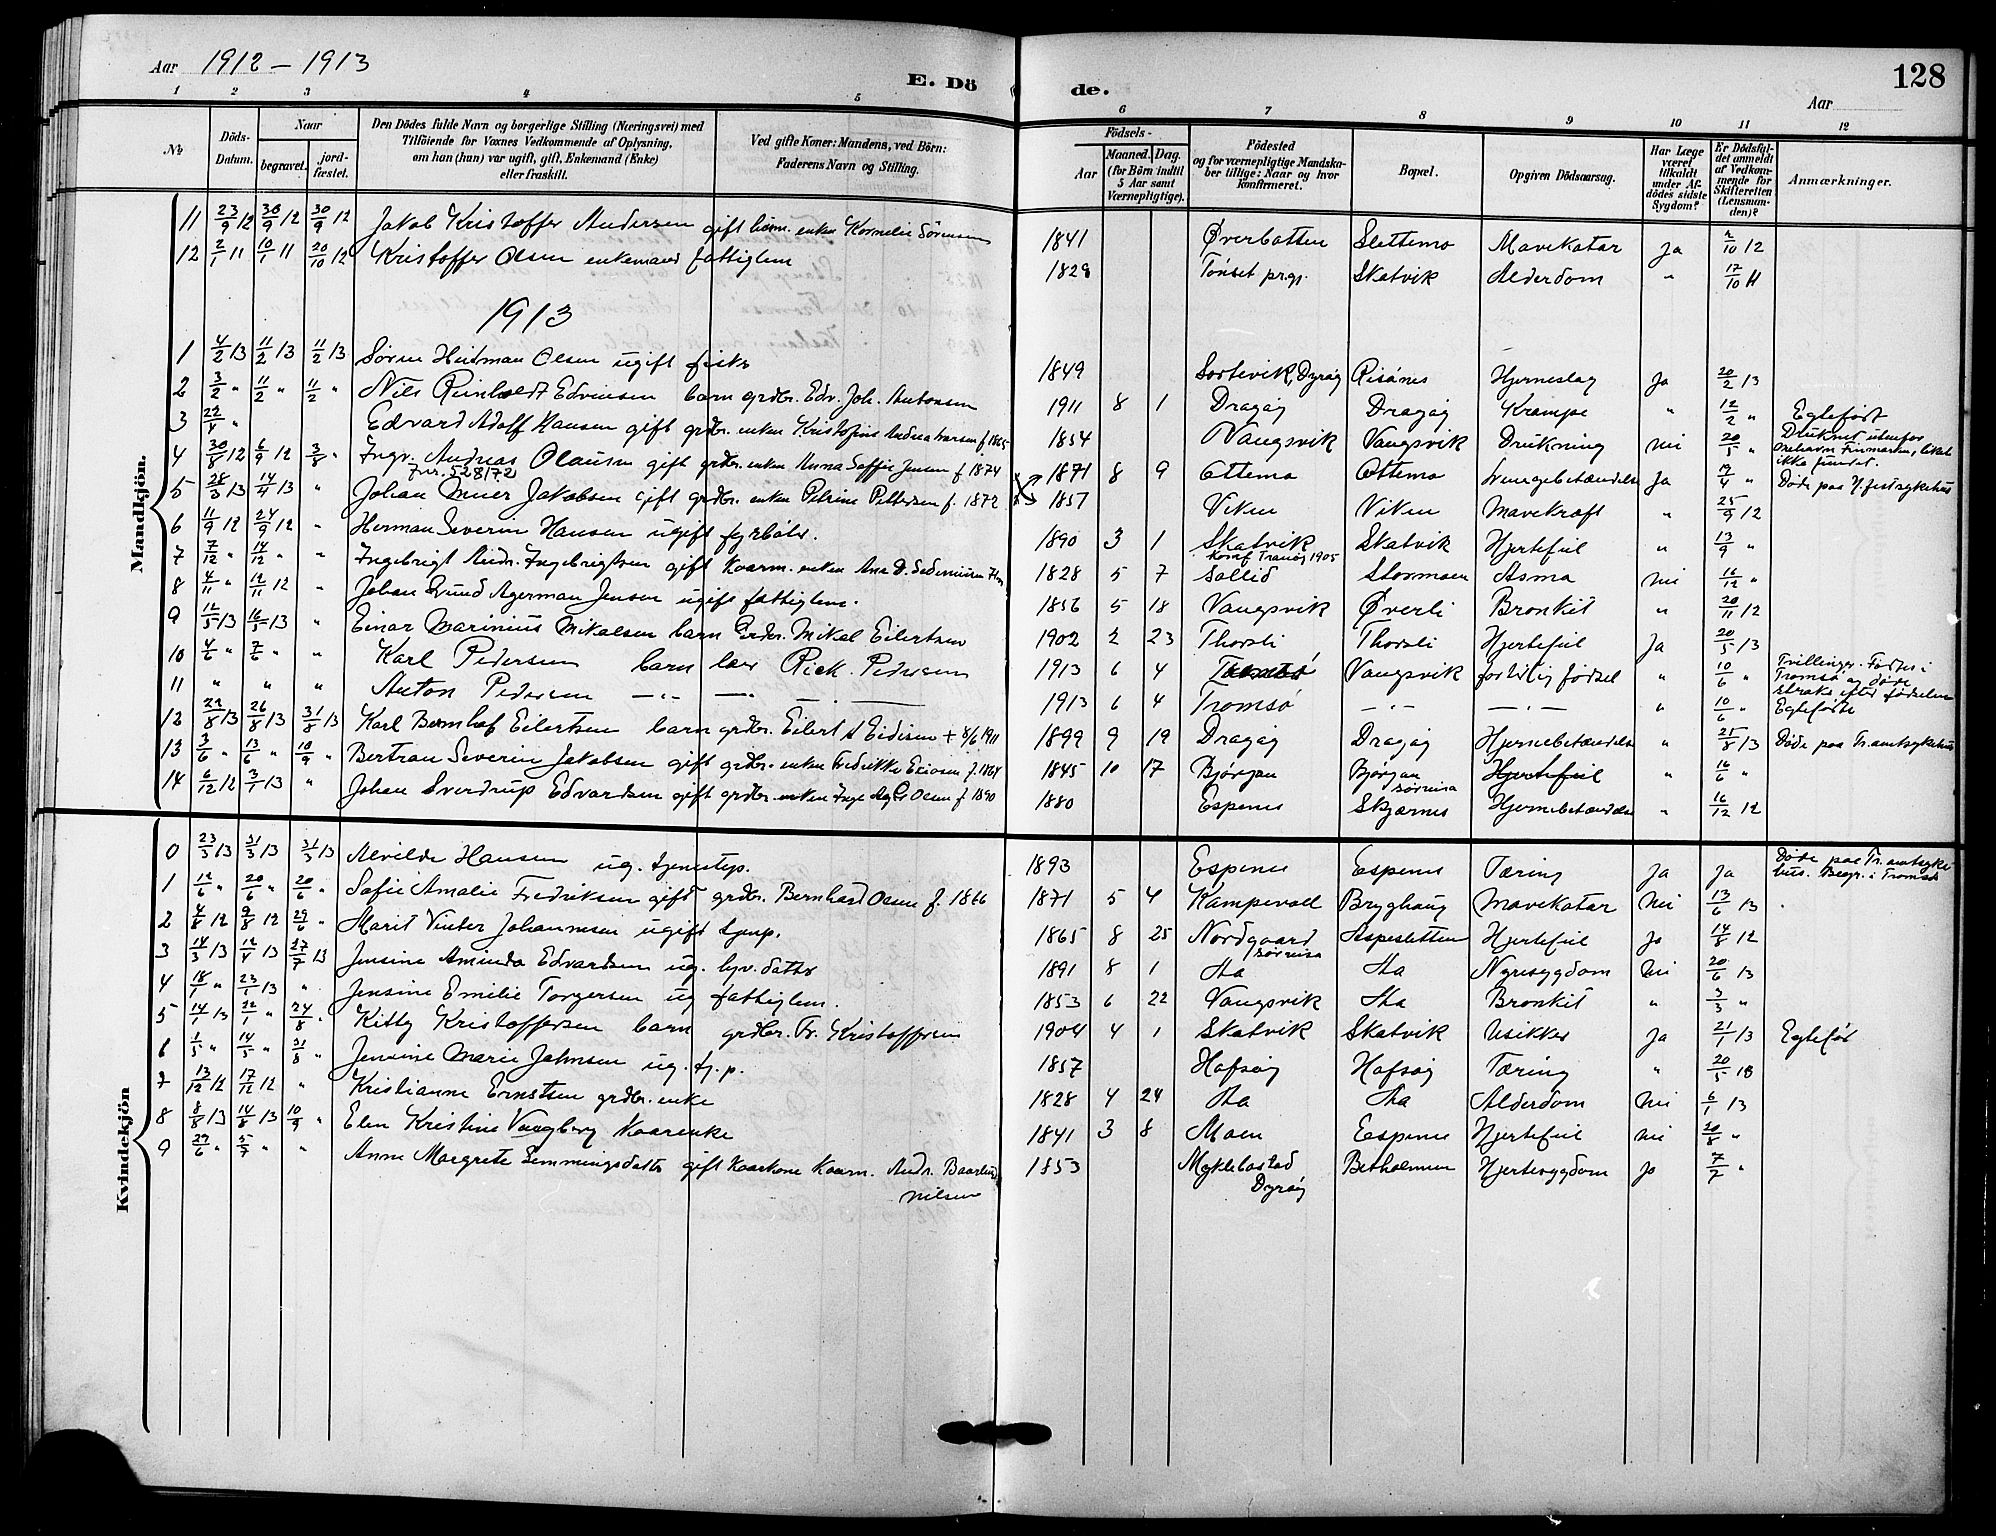 Aar 1912 - 1913
E. Dö de.
128
Aar
1 2 3 4 5 6 7 8 9 10 11 12
No
Döds-Datum.
Naar
begravet.
jord-fæstet.
Den Dödes fulde Navn og borgerlige Stilling (Næringsvei) med
Tilföiende for Voxnes Vedkommende af Oplysning,
om han (hun) var ugift, gift, Enkemand (Enke)
eller fraskilt.
Ved gifte Koner: Mandens, ved Börn:
Faderens Navn og Stilling.
Födsels-
Aar
Maaned. Dag.
(for Börn indtil
5 Aar samt
Værnepligtige).
Födested
og for værnepligtige Mandska-
ber tillige: Naar og hvor
konfirmeret.
Bopæl.
Opgiven Dödsaarsag.
Har Læge
været
tilkaldt
under Af-
dödes sidste
Sygdom?
Er Dödsfal-
det anmeldt
af Vedkom-
mende for
Skifteretten
(Lensman-
den)?
Anmærkninger.
Mandkjön.
11 23/9 12 30/9 12 30/9 12 Jakob Kristoffer Andersen gift enken Kornelie Sörensen 1841 Øverbotten Slettemo Mavekatar Ja 2/10 12
12 2/1 11 10/1 11 20/10 12 Kristoffer Olsen enkemand fattiglem 1829 Tönset prgj. Skatvik Alderdom " 17/10 11
1913
1 4/2 13 11/2 13 11/2 13 Sören Heitman Olsen ugift fisker 1849 Sortevik, Dyröy Risönes Hjerneslag Ja 20/2 13
2 3/2 " 11/2 " 11/2 " Nils Reinholdt Edvinsen barn grdbr. Edv. Joh. Antonsen 1911 8 1 Dragöy Dragöy Krampe " 12/2 " Egteföst
3 22/4 " Edvard Adolf Hansen gift grdbr. enken Kristofine Andrea f. 1865 1854 Vangsvik Vangsvik Drukning nei 20/5 " Druknet utenfor Finmarken, liket ikke fundet.
4 30/8 12 6/9 12 3/8 " Ingv. Andreas Olausen gift grdbr. enken Anna Soffie Jensen f. 1874 1871 8 9 Ottemo Ottemo Lungebetændelse Ja 19/4 " Döde paa sykehus
5 28/3 13 14/4 13 " Johan Meier Jakobsen gift grdbr. enken Petrine Pettersen f. 1872 1857 Viken Viken Mavekræft " 25/9 12
6 11/9 12 24/9 12 " Herman Severin Hansen ugift fyrböter. 1890 3 1 Skatvik Konf. Tranöy 1905 Skatvik Hjertefeil " 13/9 "
7 7/12 " 14/12 " " Ingebrigt Andr. Ingebrigtsen gift kaarm. enken Ana D. 1828 5 7 Sollid Stormoen Asma nei 16/12 "
8 4/11 " 12/11 12 " Johan Agerman Jensen ugift fattiglem. 1856 5 18 Vangsvik Øverli Bronkit " 20/11 12
9 12/5 13 16/5 13 " Einar Marinius Mikalsen barn Grdbr. Mikal Eilertsen 1902 2 23 Thorsli Thorsli Hjertefeil Ja 20/5 13
10 4/6 " 7/6 " " Karl Pedersen barn Rick. Pedersen 1913 6 4 Tromsö Vangsvik fortidlig födsel " 10/6 " Tvillinger. Födtes i Tromsö og döde straks efter födselen
11 " " " Anton Pedersen — " — — " — 1913 6 4 Tromsö — " — — " — " 10/6 " Egteföste
12 22/8 13 26/8 13 31/8 13 Karl Bernhof Eilertsen barn grdbr. Eilert A Eidissen + 8/6 1911 1899 9 19 Dragöy Dragöy Hjernebetændelse " 25/8 13 Döde paa Tr. amtsykehus
13 3/6 " 13/6 " 10/9 " Bertran Severin Jakobsen gift grdbr. enken Fredrikke f. 1864 1845 10 17 Bjørgan Bjørgan Sörreisa Hjertefeil " 16/6 "
14 6/12 12 3/1 13 " Johan Sverdrup Edvardsen gift grdbr. enken Inge Olsen f. 1890 1880 Espenes Skjærnes Hjernebetændelse " 16/12 12
Kvindekjön
0 23/3 13 31/3 13 31/3 13 Alvilde Hansen ug. tjenestep. 1893 Espenes Espenes Tæring Ja Ja Döde paa Tr. amtsykehus. Begr. i Tromsö
1 12/6 " 20/6 " 20/6 " Sofie Amalie Fredriksen gift grdbr. Bernhard Olsen f. 1866 1871 5 4 Kampevoll Bryghaug Mavekatar Nei 13/6 13
2 4/8 12 9/8 12 29/6 " Marit Vinter Johannesen ugift tjenp. 1865 8 25 Nordgaard Sörreisa Aspesletten Hjertefeil Ja 14/8 12
3 14/3 13 12/4 13 27/7 13 Jensine Aminda Edvardsen ug. datter 1891 8 1 Aa Aa Nyresygdom nei 20/6 13
4 18/1 " 23/1 13 " Jensine Emilie Torgersen ug fattiglem. 1853 6 22 Vangsvik Aa Bronkit " 3/3 "
5 14/1 13 22/1 " 24/8 " Kitty Kristoffersen barn grdbr. Fr. Kristoffersen 1904 4 1 Skatvik Skatvik Usikker Ja 21/1 13 Egteföt
6 1/5 " 14/5 " 31/8 " Jensine Marie Jahnsen ug. tj. p. 1857 Hofsöy Hofsöy Tæring " 20/5 13
7 13/12 12 17/12 12 " Kristianne Ernstsen grdbr. enke 1828 4 24 Aa Aa Alderdom Nei 6/1 13
8 8/8 13 14/8 13 10/9 " Elen Kristine Vangberg Kaarenke 1841 3 8 Moen Espenes Hjertefeil nei 20/8 "
9 29/6 " 5/7 " " Anne Margrete Hemmingsdatter gift Kaarkone Kaarm. Andr. Nilsen 1853 Myklebostad Dyröy Betholmen Hjertesygdom Ja 7/7 "